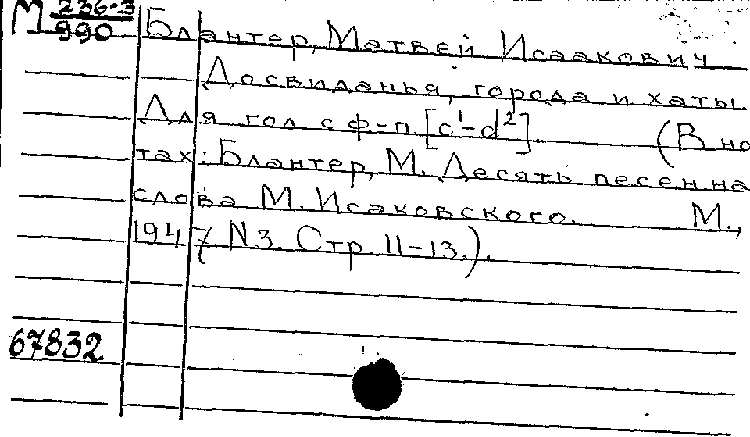 М 236-3
990
Блантер, Матвей Исаакович
Досвиданья, города и хаты.
Для гол. с ф-п [c¹-d²]. (В но
тах: Блантер, М. Десять песен на
слова М. Исаковского. М.,
1947 N3. Стр. 11-13.).
67832